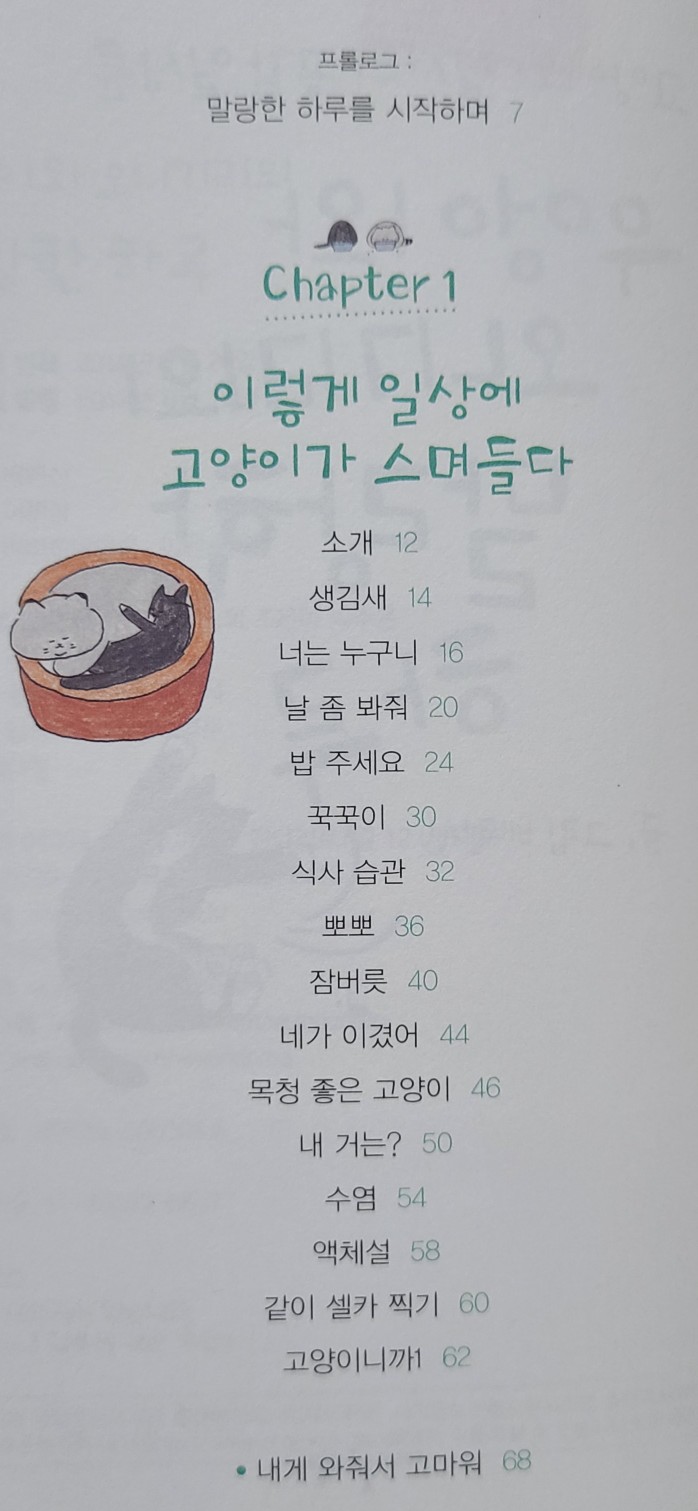 프롤로그 :
말랑한 하루를 시작하며 7
Chapter 1
이렇게 일상에
고양이가 스며들다
소개 12
생김새 14
너는 누구니 16
날 좀 봐줘 20
밥 주세요 24
꾹꾹이 30
식사 습관 32
뽀뽀 36
잠버릇 40
네가 이겼어 44
목청 좋은 고양이 46
내 거는? 50
수염 54
액체설 58
같이 셀카 찍기 60
고양이니까1 62
• 내게 와줘서 고마워 68